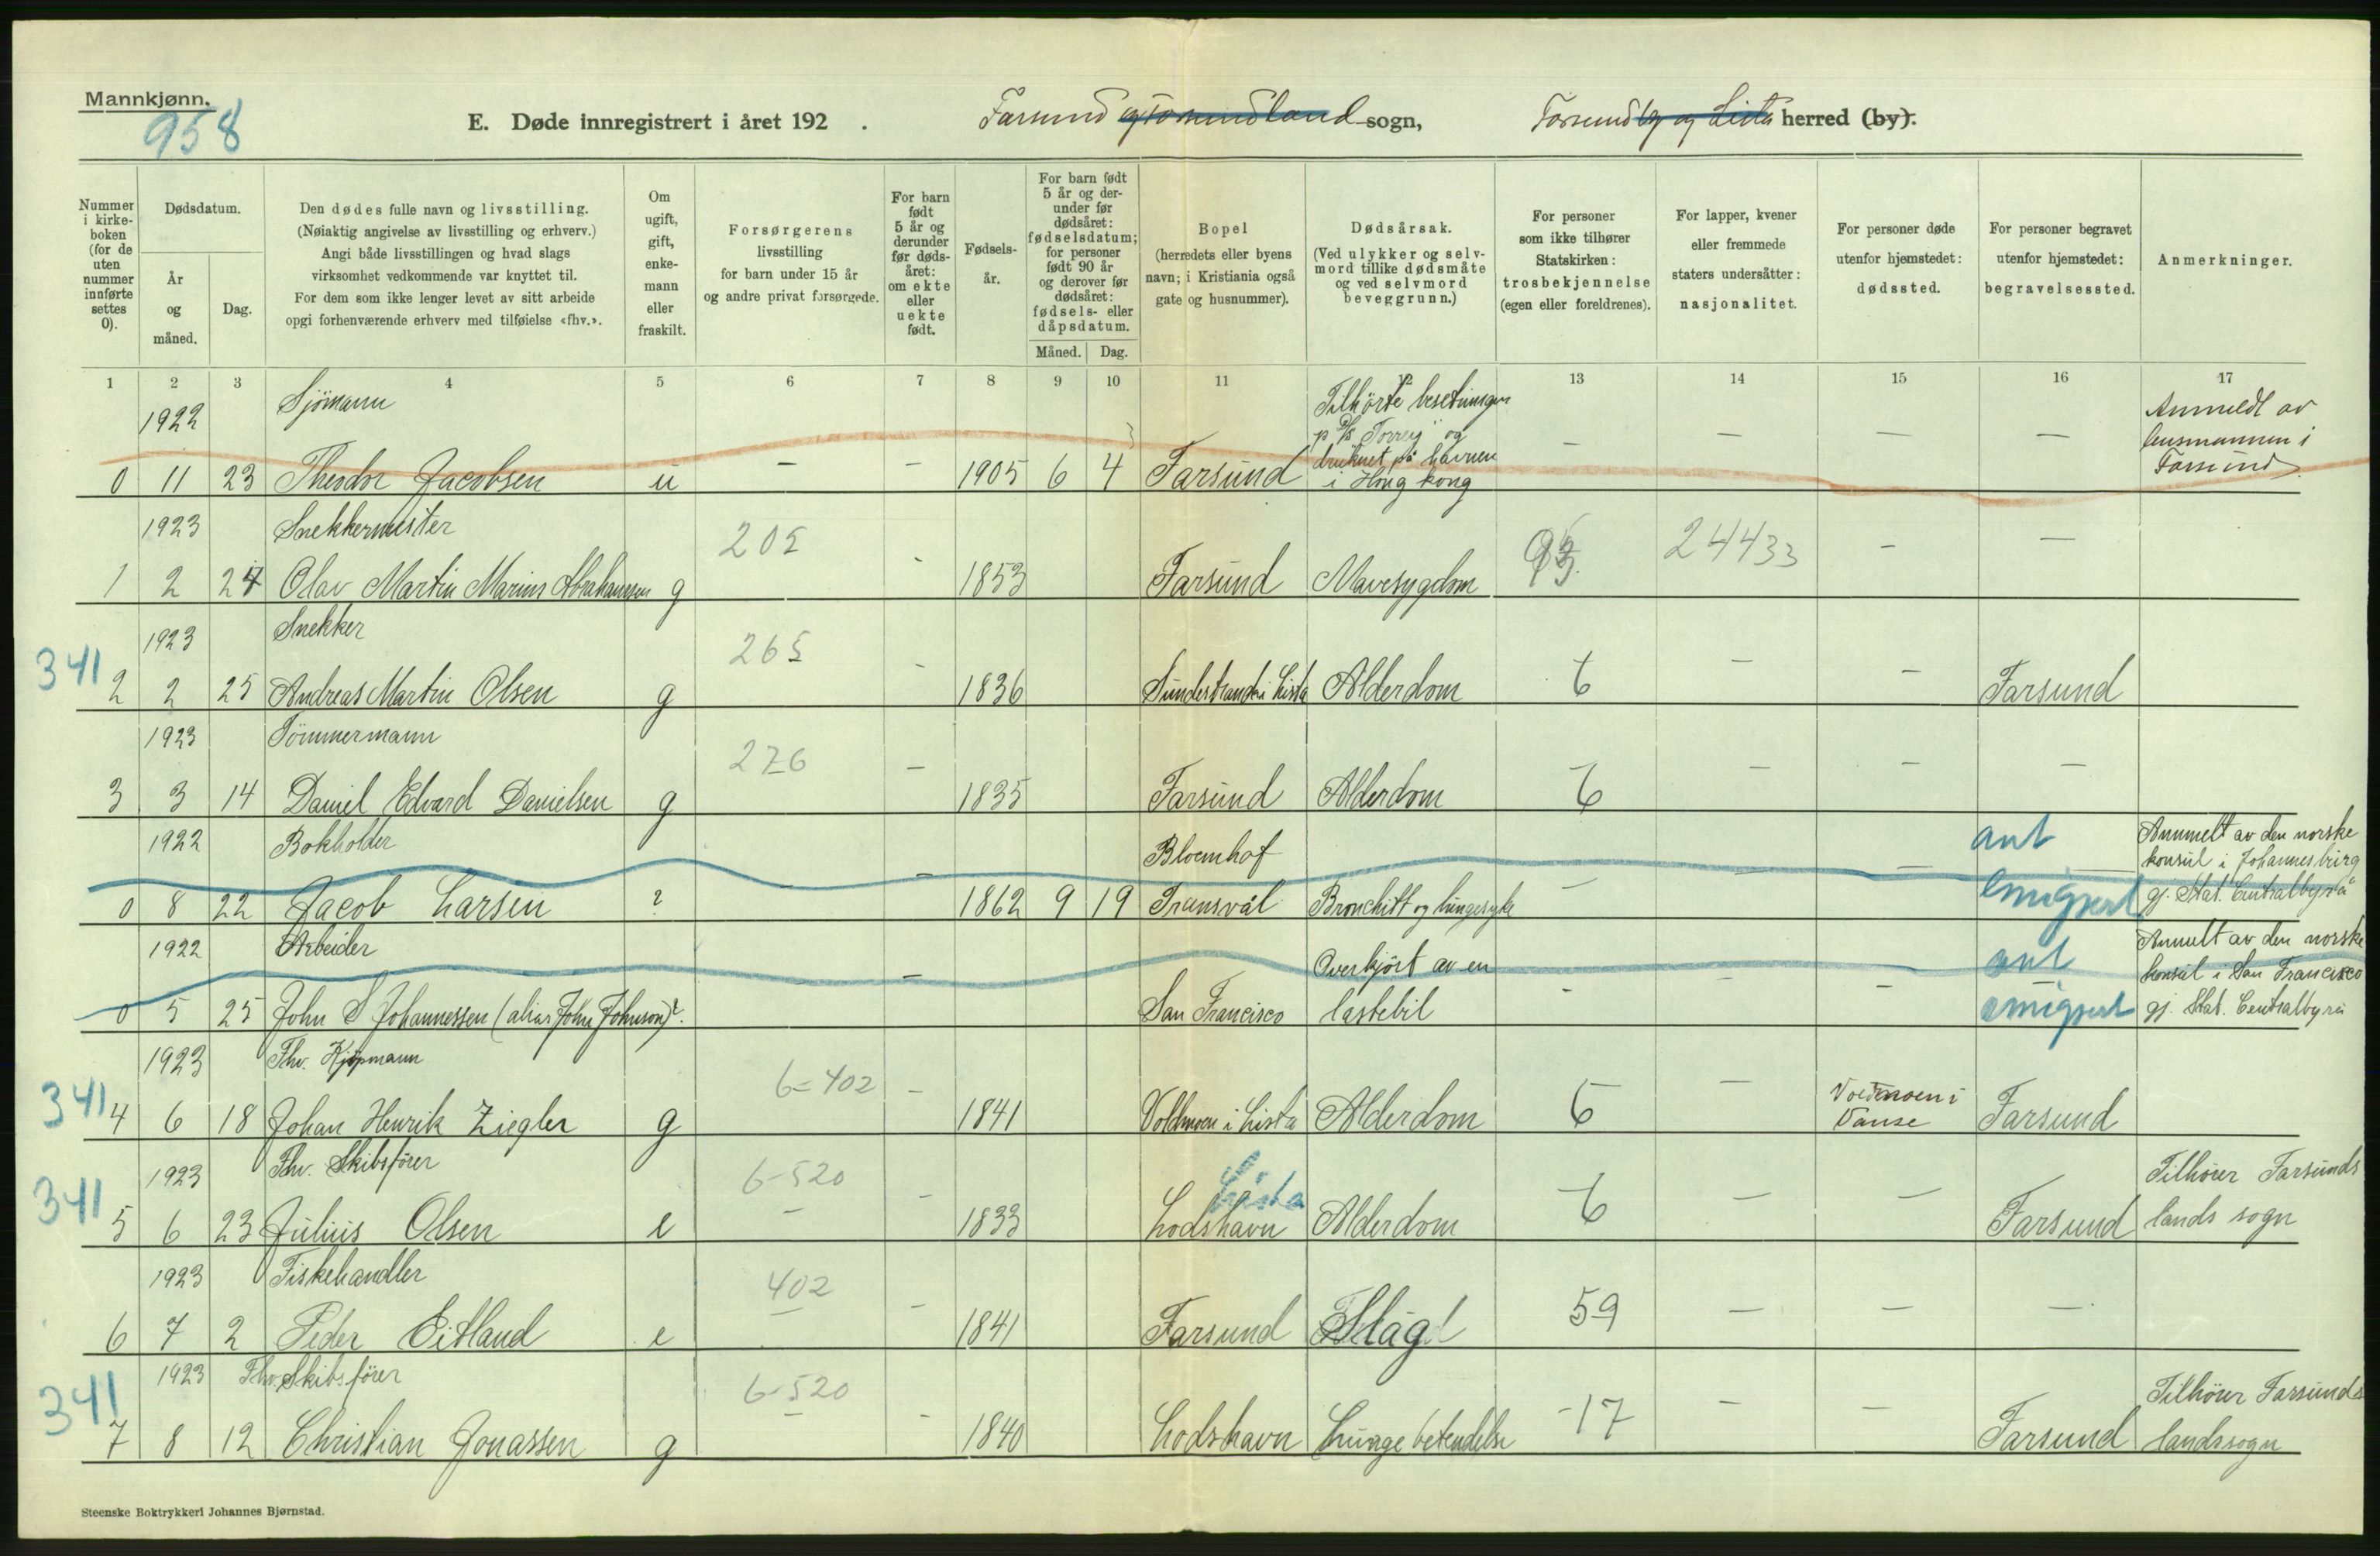 Mannkjønn.
958
E. Døde innregistrert i året 192 .
Farsund og Farsundland sogn,
Farsund by og Lista herred (by).
Nummer i kirkeboken (for de uten nummer innførte settes 0).
Dødsdatum.
År og måned.
Dag.
Den dødes fulle navn og livsstilling.
(Nøiaktig angivelse av livsstilling og erhverv.)
Angi både livsstillingen og hvad slags
virksomhet vedkommende var knyttet til.
For dem som ikke lenger levet av sitt arbeide
opgi forhenværende erhverv med tilføielse «fhv.».
Om ugift, gift, enkemann eller fraskilt.
Forsørgerens livsstilling for barn under 15 år og andre privat forsørgede.
For barn født 5 år og derunder før dødsåret: om ekte eller uekte født.
Fødselsår.
For barn født 5 år og derunder før dødsåret: fødselsdatum; for personer født 90 år og derover før dødsåret: fødsels- eller dåpsdatum.
Måned. Dag.
Bopel (herredets eller byens navn; i Kristiania også gate og husnummer).
Dødsårsak. (Ved ulykker og selvmord tillike dødsmåte og ved selvmord beveggrunn.)
For personer som ikke tilhører Statskirken: trosbekjennelse (egen eller foreldrenes).
For lapper, kvener eller fremmede staters undersåtter: nasjonalitet.
For personer døde utenfor hjemstedet: dødssted.
For personer begravet utenfor hjemstedet: begravelsessted.
Anmerkninger.
1 2 3 4 5 6 7 8 9 10 11 12 13 14 15 16 17
1922 Sjömann Tilhörte besetningen Anmeldt av
p D/S "Torrey" og lensmannen i
druknet på havnen Farsund
0 11 23 Theodor Jacobsen u - - 1905 6 4 Farsund i Hong kong - - - -
1923 Snekkermester 205 93. 24433
1 2 24 Olav Martin Marius Abrahamsen g - 1853 Farsund Mavesygdom - -
1923 Snekker 265
341 2 2 25 Andreas Martin Olsen g - 1836 Sunderstrand i Lista Alderdom 6 - - Farsund
1923 Tömmermann 276
3 3 14 Daniel Edvard Danielsen g - 1835 Farsund Alderdom 6 - - -
1922 Bokholder Bloemhof ant Anmelt av den norske
konsul i Johannesburg
0 8 22 Jacob Larsen ? - - 1862 9 19 Transvál Bronchitt og lungesyke - - - emigrert gj. Stat. Centralbyrå
1922 Arbeider Overkjört av en ant Anmelt av den norske
konsul i San Francisco
0 5 25 John S Johannessen (alias John Johnson) ? - San Francisco lastebil - - - emigrert gj. Stat. Centralbyrå
1923 Fhv. Kjöpmann 6-402 Voldmoen i
341 4 6 18 Johan Henrik Ziegler g - 1841 Voldmoen i Lista Alderdom 6 - Vanse Farsund
1923 Fhv. Skibsförer 6-520 Lista Tilhörer Farsunds
341 5 6 23 Julius Olsen e - - 1833 Lodshavn Alderdom 6 - - Farsund lands sogn
1923 Fiskehandler 402
6 7 2 Peder Eitland e - 1841 Farsund Slag 59 - - -
1923 Fhv. Skibsförer 6-520 Tilhörer Farsunds
341 7 8 12 Christian Jonassen g - 1840 Lodshavn Lunge betendelse 17 - - Farsund landssogn
Steenske Boktrykkeri Johannes Bjørnstad.